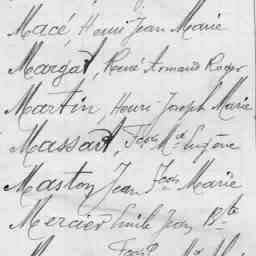 Macé, Henri Jean Marie
Margat, René Armand Roger
Martin, Henri Joseph Marie
Massart Fçois Mie Eugène
Maston Jean Fçois Marie
Mercier Emile Jean Bte